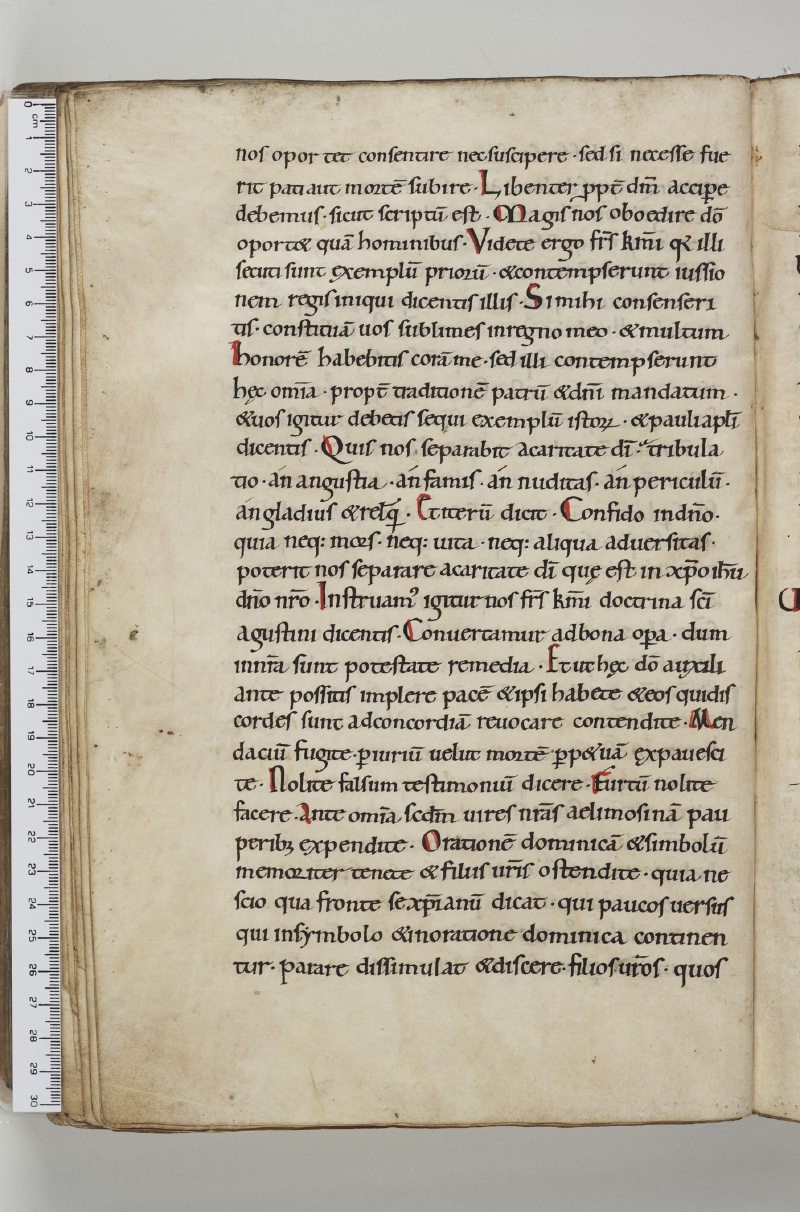 nos oportet consentire nec suscipere · sed si necesse fue
rit pati aut mortē subire · Libenter ꝓpt̄ dm̄ accipe
debemus · sicut scriptū est · Magis nos oboedire dō
oport& quā hominibus · Videte ergo frs̄ km̄i qa illi
secuti sunt exemplū priorū · &contempserunt iussio
nem regis iniqui dicentis illis · Si mihi consenseri
tis · constituā uos sublimes in regno meo · &multum
honorē habebitis corā me · sed illi contempserunt
hęc om̄ia · propt̄ traditionē patrū &dn̄i mandatum ·
&uos igitur debetis sequi exemplū istoꝝ · &pauli apl̄i
dicentis · Quis nos separabit a caritate dī · tribula
tio · án angustia · án famis · án nuditas · án periculū ·
án gladius &relq̄ · Et iterū dicit · Confido in dn̄o ·
quia neq: mors · neq: uita · neq: aliqua aduersitas ·
poterit nos separare a caritate dī quę est in xp̄o ihū
dn̄o nr̄o · Instruam' igitur nos frs̄ km̄i doctrina scī
agustini dicentis · Conuertamur ad bona op̄a · dum
in nr̄a sunt potestate remedia · Et ut hęc dō auxili
ante possitis implere pacē &ipsi habete &eos qui dis
cordes sunt ad concordiā reuocare contendite · Men
daciū fugite · ꝑiuriū uelut mortē ꝑp&uā expauesci
te · Nolite falsum testimoniū dicere · Furtū nolite
facere · Ante om̄ia scdm̄ uires nr̄as aelimosinā pau
perib; expendite · Orationē dominicā &simbolū
memoriter tenete &filiis ur̄is ostendite · quia ne
scio qua fronte se xp̄ianū dicat · qui paucos uersus
qui in symbolo &in oratione dominica continen
tur · parare dissimulat &discere · filios ur̄os · quos